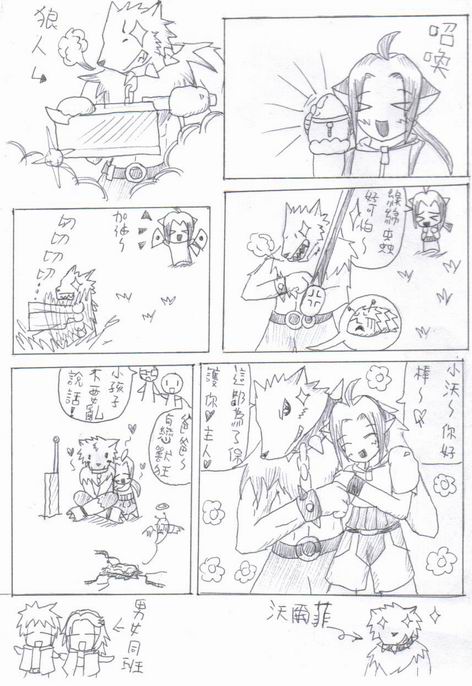 召喚
狼人
綿綿虫蟲
好可怕~
加油~
切切切切…
小沃~你好
棒~
這都為了保
護你♥主人♥
爸爸~
有戀獸狂
小孩子
不要亂
說話!
男女同班
沃爾菲